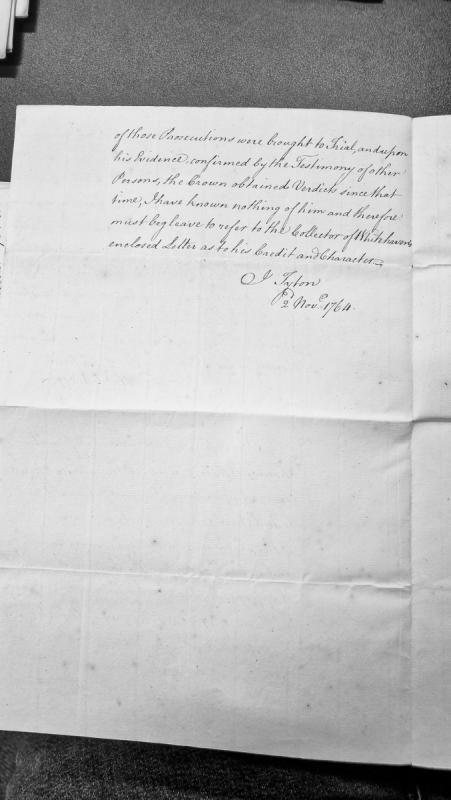 of those Prosecutions were brought to Trial, and upon
his Evidence, confirmed by the Testimony of other
Persons, the Crown obtained Verdicts since that
time, I have known nothing of him and therefore
must beg leave to refer to the Collector of Whitehavens
enclosed Letter as to his Credit and Character
J Tyton
2d Novr. 1764.